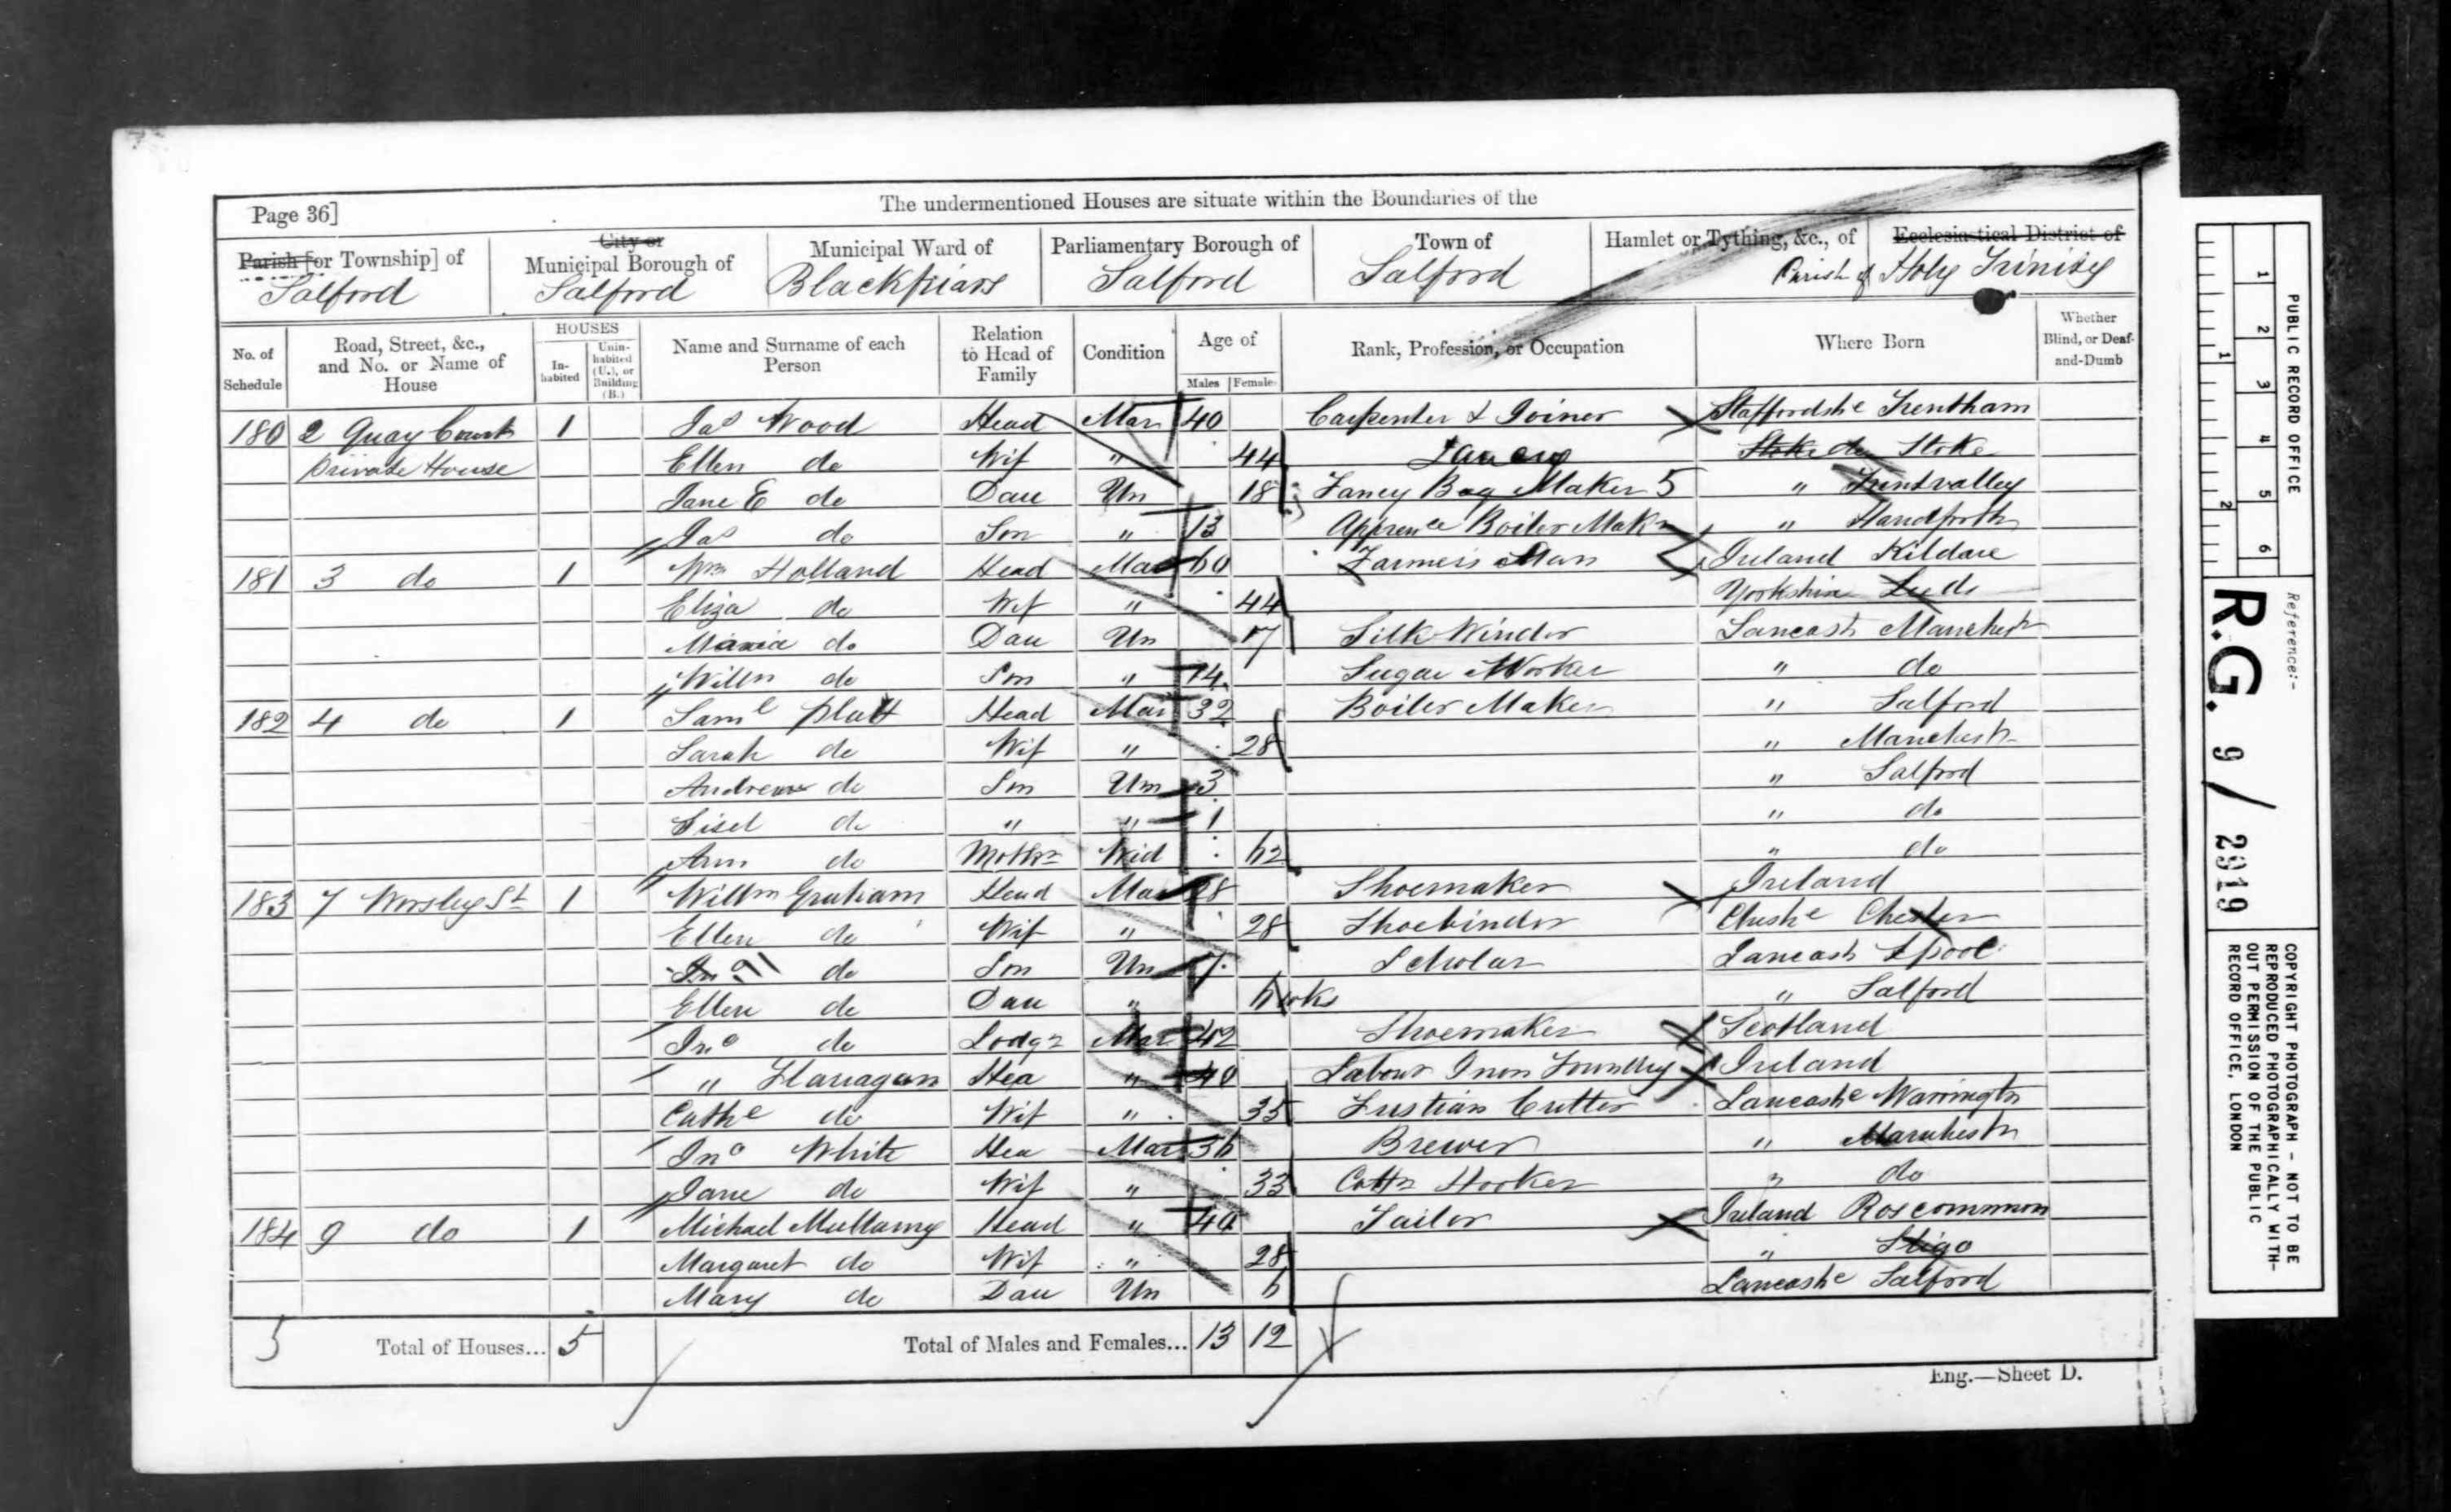 The undermentioned Houses are situate within the Boundaries of the
Page 36]
Parish [or Township] of
Salford
City or Municipal Borough of
Salford
Municipal Ward of
Blackfriars
Parliamentary Borough of
Salford
Town of
Salford
Hamlet or Tything, &c., of
Ecclesiastical District of
Parish of Holy Trinity
No. of Schedule
Road, Street, &c., and No. or Name of House
HOUSES
In-habited
Unin-habited (U.), or Building (B.)
Name and Surname of each Person
Relation to Head of Family
Condition
Age of
Males
Females
Rank, Profession, or Occupation
Where Born
Whether Blind, or Deaf-and-Dumb
180 2 Quay Court 1 Jas Wood Head Mar 40 Carpenter & Joiner Staffordshe Trentham
Private House Ellen do Wif " 44 Stoke
Jane E do Dau Un 18 Fancy Bag Maker 5 "
Jas do Son " 13 Apprence Boiler Makr " Handforth
181 3 do 1 Wm Holland Head Mar 60 Farmers Man Ireland Kildare
Eliza do Wif " 44 Yorkshire Leeds
Maria do Dau Un 17 Silk Winder Lancash Manchestr
Willm do Son " 14 Sugar Worker " do
182 4 do 1 Saml Platt Head Mar 32 Boiler Maker " Salford
Sarah do Wif " 28 " Manchestr
Andrew do Son Un 3 " Salford
do " " 1 " do
Ann do Mothr Wid 62 " do
183 7 Worsley St 1 Willm Graham Head Mar 28 Shoemaker Ireland
Ellen do Wif " 28 Shoebinder Cheshe Chester
do Son Un 7 Scholar Lancash Lpool
Ellen do Dau " 6 wks " Salford
Jno do Lodgr Mar 42 Shoemaker Scotland
" Flanagan Hea " 40 Labour Iron Foundry Ireland
Cathe do Wif " 35 Fustian Cutter Lancashe Warringtn
Jno White Hea Mar 36 Brewer " Manchestr
Jane do Wif " 33 Cottn Hooker " do
184 9 do 1 Michael Mullamy Head " 40 Tailor Ireland Roscommon
Margaret do Wif " 28 " Sligo
Mary do Dau Un 6 Lancashe Salford
5 Total of Houses... 5 Total of Males and Females... 13 12
Eng.—Sheet D.
PUBLIC RECORD OFFICE
1 2 3 4 5 6
1 2
Reference:-
R.G. 9/2919
COPYRIGHT PHOTOGRAPH – NOT TO BE
REPRODUCED PHOTOGRAPHICALLY WITH-
OUT PERMISSION OF THE PUBLIC
RECORD OFFICE, LONDON